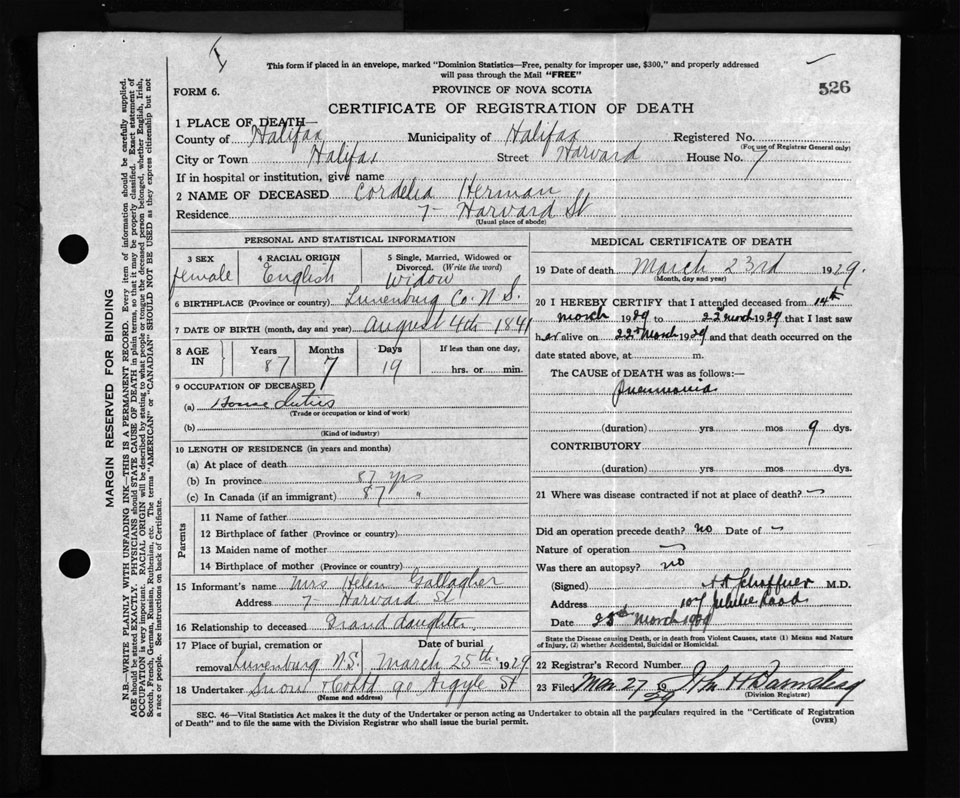 This form if placed in an envelope, marked "Dominion Statistics—Free, penalty for improper use, $300," and properly addressed
will pass through the Mail "FREE"
526
FORM 6.
PROVINCE OF NOVA SCOTIA
CERTIFICATE OF REGISTRATION OF DEATH
1 PLACE OF DEATH—
County of Halifax Municipality of Halifax Registered No.
(For use of Registrar General only)
City or Town Halifax Street Harvard House No. 7
If in hospital or institution, give name
2 NAME OF DECEASED Cordelia Herman
Residence 7- Harvard St
(Usual place of abode)
PERSONAL AND STATISTICAL INFORMATION
3 SEX 4 RACIAL ORIGIN 5 Single, Married, Widowed or
Divorced. (Write the word)
female English Widow
6 BIRTHPLACE (Province or country) Lunenburg Co. N.S.
7 DATE OF BIRTH (month, day and year) August 4th 1841
8 AGE IN Years Months Days If less than one day,
87 7 19 hrs. or min.
9 OCCUPATION OF DECEASED
(a) House duties
(Trade or occupation or kind of work)
(b)
(Kind of industry)
10 LENGTH OF RESIDENCE (in years and months)
(a) At place of death
(b) In province 87 yrs
(c) In Canada (if an immigrant) 87 "
Parents
11 Name of father
12 Birthplace of father (Province or country)
13 Maiden name of mother
14 Birthplace of mother (Province or country)
15 Informant's name Mrs Helen Gallagher
Address 7- Harvard St
16 Relationship to deceased Grand daughter
17 Place of burial, cremation or Date of burial
removal Lunenburg N.S. March 25th 1929
18 Undertaker Snow & Co Ltd 90 Argyle St
(Name and address)
MEDICAL CERTIFICATE OF DEATH
19 Date of death March 23rd 1929.
(Month, day and year)
20 I HEREBY CERTIFY that I attended deceased from 14th
March 1929 to 22nd March 1929 that I last saw
her alive on 22nd March 1929 and that death occurred on the
date stated above, at m.
The CAUSE of DEATH was as follows:—
Pneumonia
(duration) yrs mos 9 dys.
CONTRIBUTORY
(duration) yrs mos dys.
21 Where was disease contracted if not at place of death? —
Did an operation precede death? no Date of —
Nature of operation —
Was there an autopsy? no
(Signed) Schaffner M.D.
Address 107 Jubilee Road
Date March 1929
State the Disease causing Death, or in death from Violent Causes, state (1) Means and Nature
of Injury, (2) whether Accidental, Suicidal or Homicidal.
22 Registrar's Record Number
23 Filed Mar 27 29 John H
(Division Registrar)
SEC. 46—Vital Statistics Act makes it the duty of the Undertaker or person acting as Undertaker to obtain all the particulars required in the "Certificate of Registration
of Death" and to file the same with the Division Registrar who shall issue the burial permit.
(OVER)
MARGIN RESERVED FOR BINDING
N.B.—WRITE PLAINLY WITH UNFADING INK—THIS IS A PERMANENT RECORD. Every item of information should be carefully supplied.
AGE should be stated EXACTLY. PHYSICIANS should STATE CAUSE OF DEATH in plain terms, so that it may be properly classified. Exact statement of
OCCUPATION is very important. RACIAL ORIGIN will be described by stating to what people or tongue the deceased person belonged, whether English, Irish,
Scotch, French, German, Russian, Ruthenian, etc. The terms "AMERICAN" or "CANADIAN" SHOULD NOT BE USED as they express citizenship but not
a race or people. See instructions on back of Certificate.